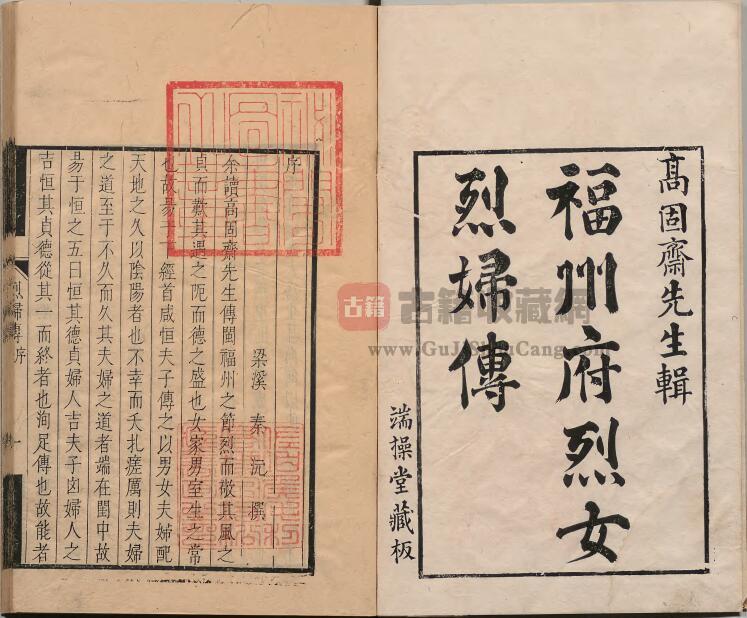 高固齋先生輯
福州府烈女
烈婦傳
端操堂藏板
序
梁溪秦沅撰
余讀高固齋先生傳閩福州之節烈而敬其風之
貞而歎其遇之阨而德之盛也女家男室生之常
也故易下經首咸恒夫子傳之以男女夫婦配
天地之久以陰陽者也不幸而夭扎瘥厲則夫婦
之道至于不久而久其夫婦之道者端在閨中故
易于恒之五曰恒其德貞婦人吉夫子凶婦人之
吉恒其貞德從其一而終者也洵足傳也故能者
烈婦傳序
一
古籍
古籍收藏網
www.GuJiShouCang.com